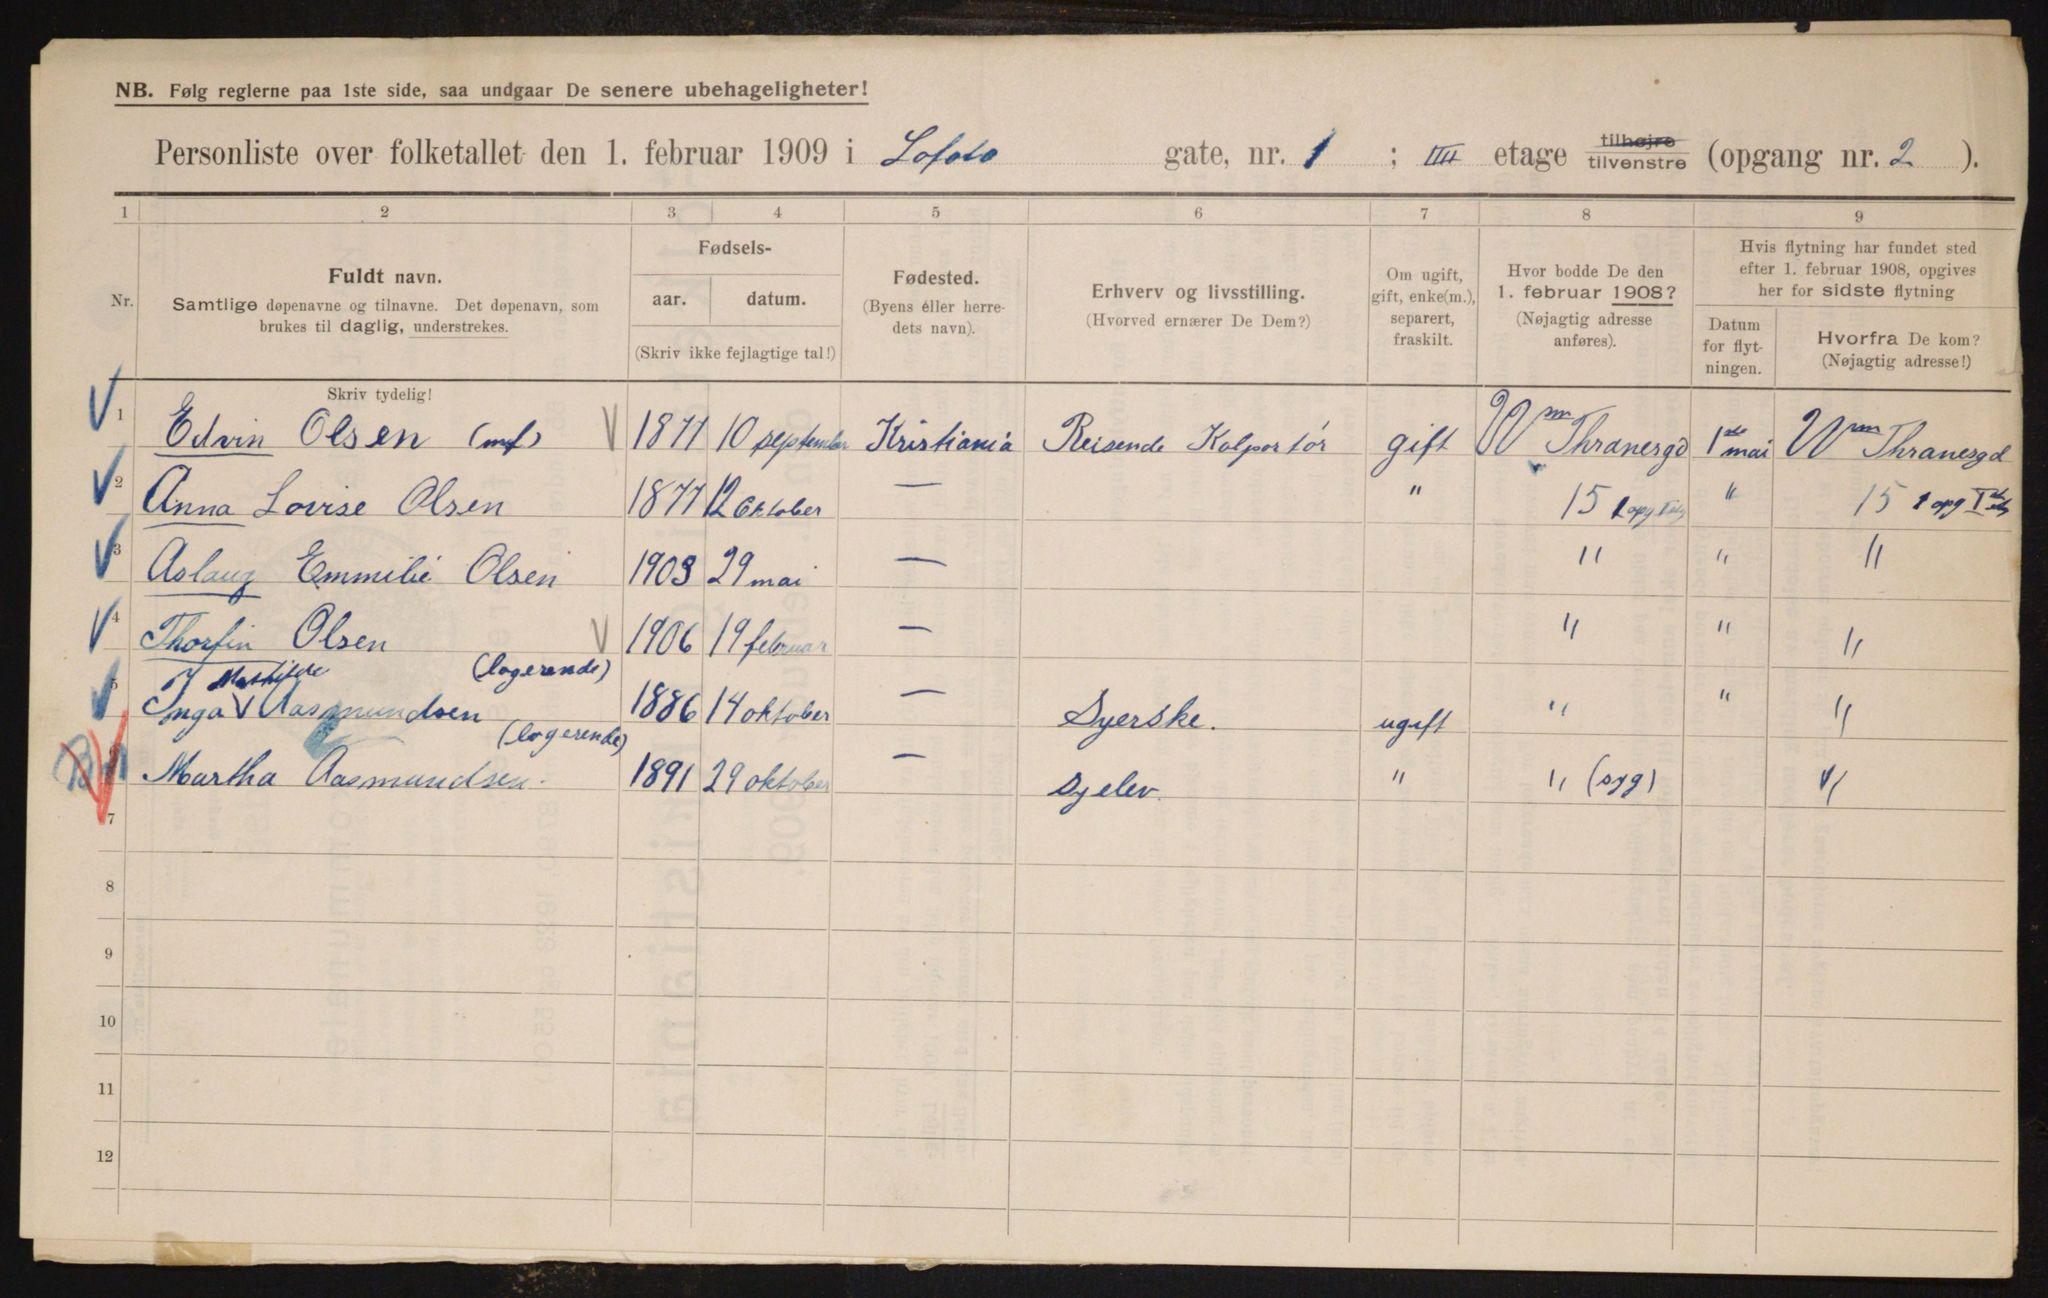 NB. Følg reglerne paa 1ste side, saa undgaar De senere ubehageligheter!
Personliste over folketallet den 1. februar 1909 i Lofoto gate, nr. 1 ; IIII etage tilhøjre tilvenstre (opgang nr. 2 ).
1 2 3 4 5 6 7 8 9
Nr.
Fuldt navn.
Samtlige døpenavne og tilnavne. Det døpenavn, som
brukes til daglig, understrekes.
Skriv tydelig!
Fødsels-
aar. datum.
(Skriv ikke fejlagtige tal!)
Fødested.
(Byens eller herre-
dets navn).
Erhverv og livsstilling.
(Hvorved ernærer De Dem?)
Om ugift,
gift, enke(m.),
separert,
fraskilt.
Hvor bodde De den
1. februar 1908?
(Nøjagtig adresse
anføres).
Hvis flytning har fundet sted
efter 1. februar 1908, opgives
her for sidste flytning
Datum
for flyt-
ningen.
Hvorfra De kom?
(Nøjagtig adresse!)
1 Edvin Olsen 1877 10 september Kristiania Reisende Kolportør gift Wm Thranergd 1ste mai Wm Thranesgd
2 Anna Lovise Olsen 1877 12 Oktober — " 15 1 opg " 15 1 opg
3 Aslaug Emmilie Olsen 1903 29 mai — " " "
4 Thorfin Olsen 1906 19 februar — " " "
Mathilde (logerende)
5 Inga V Aasmundsen 1886 14 oktober — Syerske. ugift " " "
(logerende)
6 Martha Aasmundsen. 1891 29 oktober — Syelev. " " (syg) "
7
8
9
10
11
12